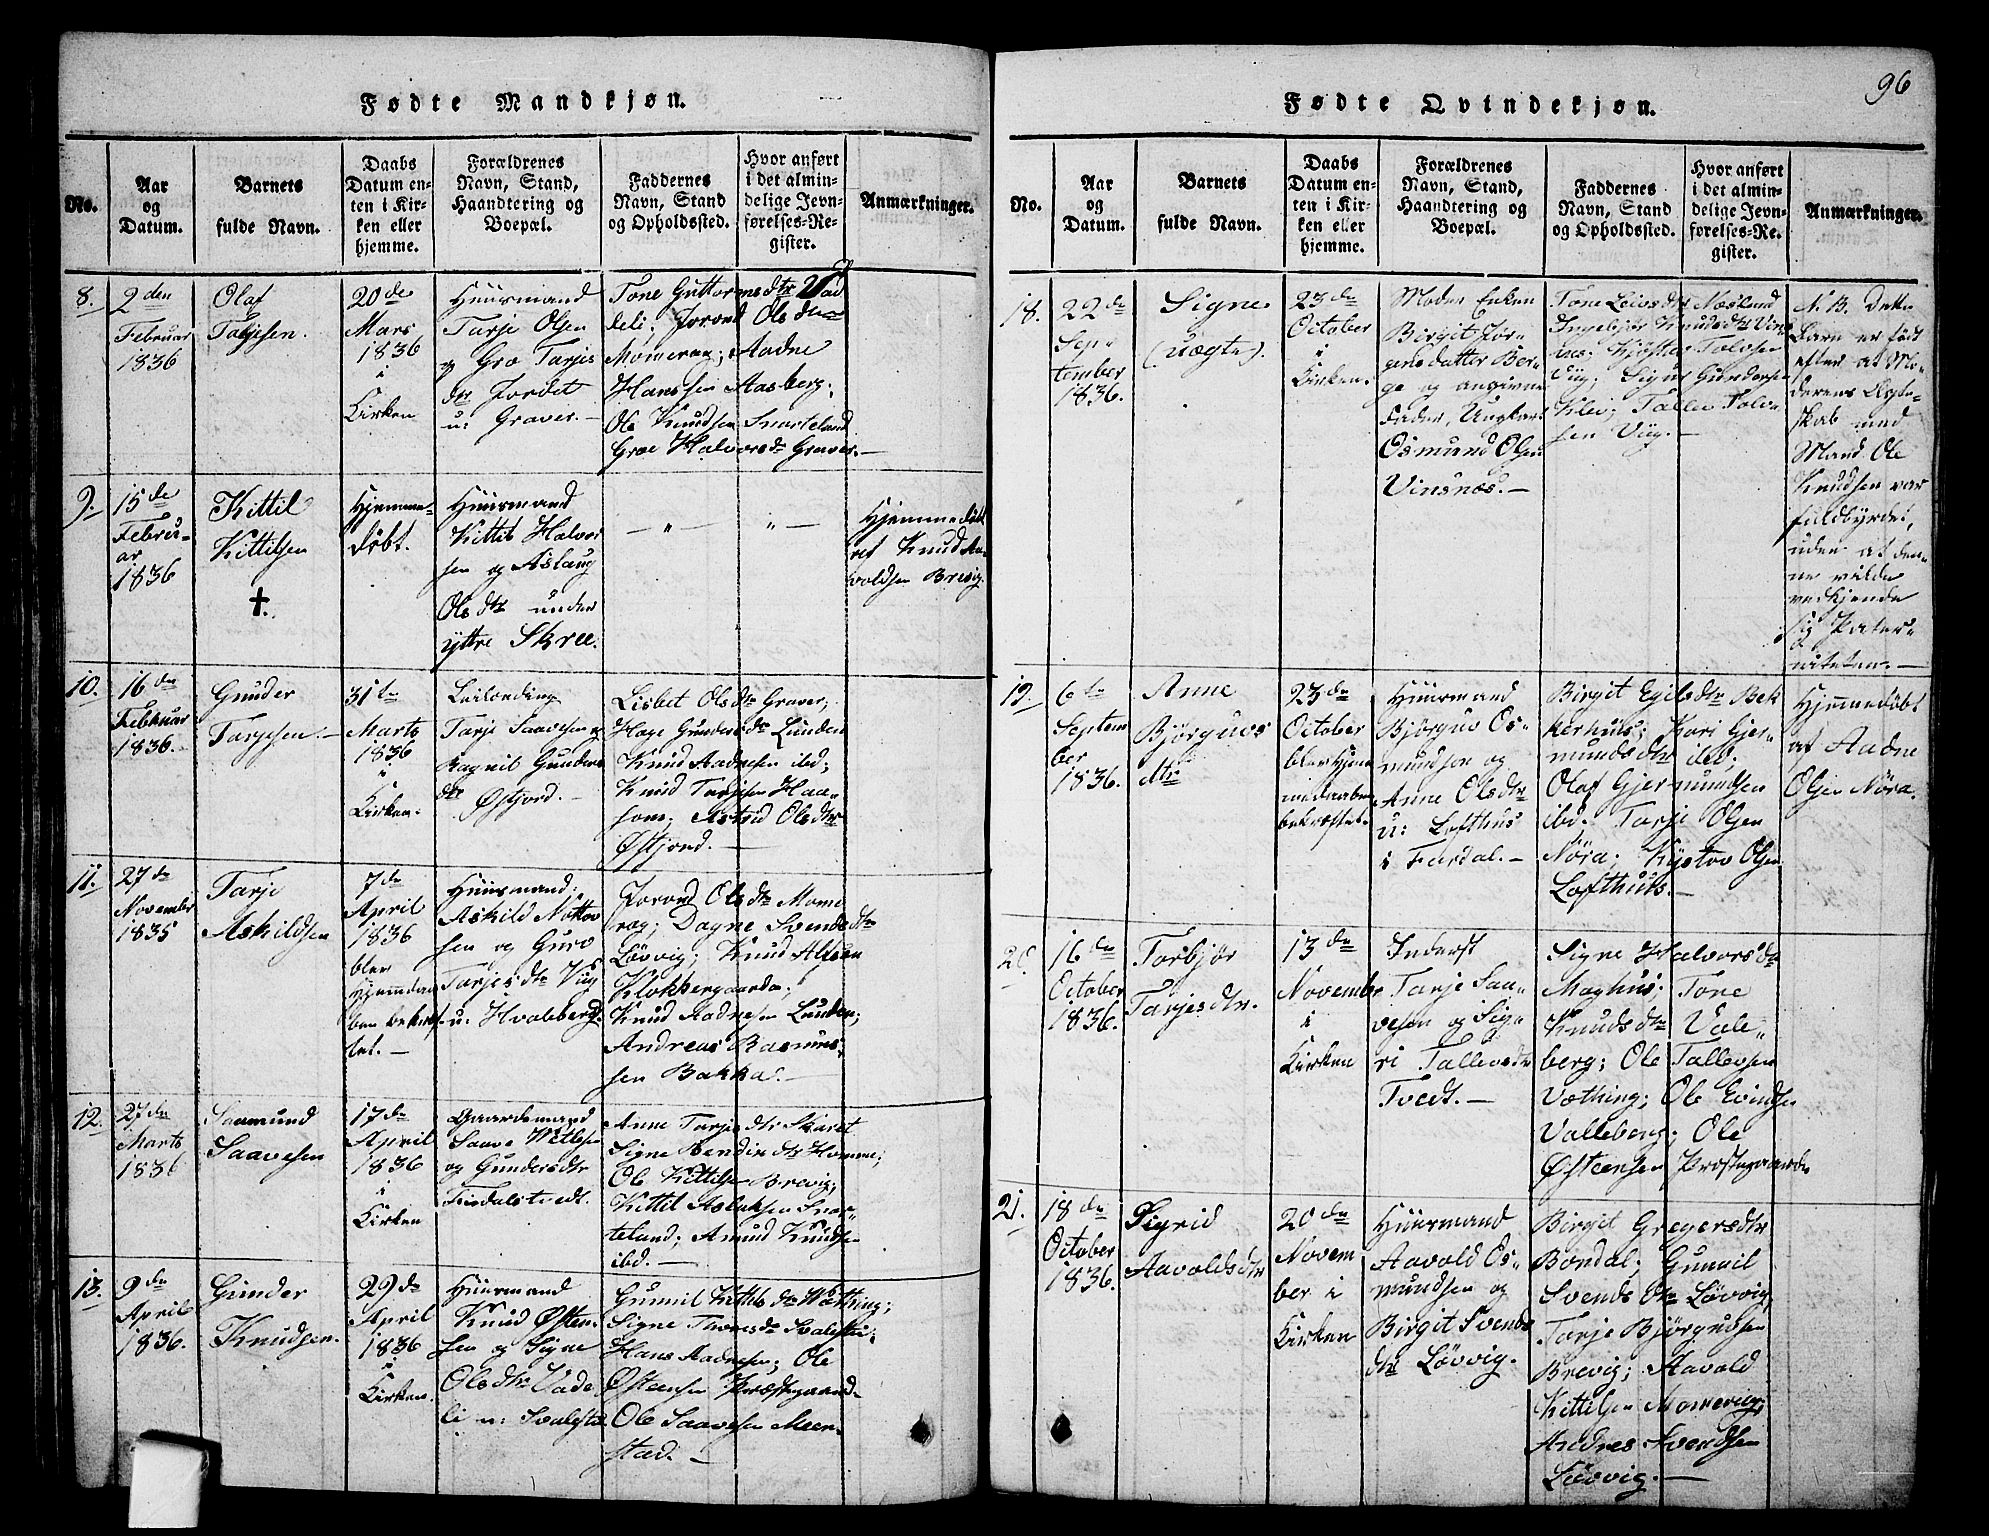 96
Fødte Mandkjøn.
No.
Aar
og
Datum.
Barnets
fulde Navn.
Daabs
Datum en-
ten i Kir-
ken eller
hjemme.
Forældrenes
Navn, Stand,
Haandtering og
Boepæl.
Faddernes
Navn, Stand
og Opholdssted.
Hvor anført
i det almin-
delige Jevn-
førelses-Re-
gister.
Anmærkninger.
8.
2den
Februar
1836
Olaf
Tarjesen.
20de
Mars
1836
i
Kirken
Huusmand
Tarje Olsen
og Gro Tarjis
dtr Jordet
u: Graver.
Tone Guttormsdtr Vad
deli; Jorond Olsdtr
Momerag; Aadne
Hanssen Aasberg;
Ole Knudsen Snarteland
Groe Halvorsdtr Graver.
9.
15de
Febru-
ar
1836
Kittil
Kittilsen
†.
Hjemme-
døbt.
Huusmand
Kittil Halvor
sen og Aslaug
Olsdtr under
yttre Skree.
— " —
" —
Hjemmedøbt
af Knud Aa-
voldsen Brevig.
10.
16de
Februar
1836.
Gunder
Tarjesen.
31te
Marts
1836
i
Kirken.
Leilending
Tarje Saavesen og
Ragnil Gunders
dtr Østjord.
Lisbet Olsdtr Graver;
Hage Gundersdtr Lunden
Knud Aadnesen ibd;
Knud Tarjesen Haa-
som; Astrid Olsdtr
Østjord.
11.
27de
November
1835
Tarje
Askildsen
7de
April
1836
blev
Hjemmdaa
ben bekræf-
tet.
Huusmand:
Askild Nottov
sen og Guro
Tarjesdtr Viig
u. Hvaleberg.
Jorond Olsdtr Mome
rag; Dagne Svendsdtr
Løvvig; Knud Alfsen
Klokkergaarden;
Knud Aadnesen Lunden;
Andreas Rasmus-
sen Bakka.
12.
27de
Marts
1836
Saamund
Saavesen
17de
April
1836
i
Kirken
Gaardemand
Saave Kittilsen
og Gundersdtr
Findalstvedt.
Anne Tarjedtr Skaret
Signe Bendixdtr Homme;
Ole Kittilsen Brevig;
Kittil Aslaksen Snar-
teland; Amund Knudsen
ibd.
13.
9de
April
1836.
Gunder
Knudsen.
29de
April
1836
i
Kirken.
Huusmand
Knud Østen-
sen og Signe
Olsdtr Vade
li u: Svalestu
Gunnil Kittilsdtr Wæthing;
Signe Thoresdtr Svalestu;
Hans Aadnesen; Ole
Østensen Præstegaard-
Ole Saavesen Meen-
stad.
Fødte Qvindekjøn.
No.
Aar
og
Datum.
Barnets
fulde Navn.
Daabs
Datum en-
ten i Kir-
ken eller
hjemme.
Forældrenes
Navn, Stand,
Haandtering og
Boepæl.
Faddernes
Navn, Stand
og Opholdssted.
Hvor anført
i det almin-
delige Jevn-
førelses-Re-
gister.
Anmærkninger.
18.
22de
Sep-
tember
1836.
Signe
(uægte).
23de
October
i
Kirken.
Moder Enken
Birgit Jør-
gensdatter Ber-
ge og angivne
Fader, Ungkarl
Osmund Olsen
Vinsnæs.
Tone Leivsdtr Næsland
Ingebjør Knudsdtr Vins
næs; Kjøstov Tolvsen
Viig; Sigur Gundersen
Klev; Tallev Tolv-
sen Viig.
N.B. Dette
Barn er født
efter at Mo-
derens Ægte-
skab med
Mand Ole
Knudsen var
fuldbyrdet,
uden at den-
ne vilde
vedkjende
sig Pater-
niteten.
19.
6te
Septem
ber
1836.
Anne
Bjørguvs
dtr
23de
October
blev Hjem
medaaben
bekræftet.
Huusmand
Bjørguv Os-
mundsen og
Anne Olsdtr
u: Lofthus
i Fardal.
Birgit Egilsdtr Bek
kerhuus; Kari Gjer-
mundsdtr ibd;
Olaf Gjermundsen
ibd. Tarje Olsen
Nöra; Kjøstov Olsen
Lofthuus.
Hjemmedøbt
af Aadne
Olsen Nöra.
20.
16de
October
1836.
Torbjør
Tarjesdtr.
13de
Novembr
i
Kirken
Inderst
Tarje Saa-
vesen og Sig-
ri Tallevsdtr
Tvedt.
Signe Halvorsdtr
Moghus; Tone
Knudsdtr Vale-
berg; Ole Tallevsen
Væthing; Ole Evindsen
Valleberg; Ole
Østensen Præstegaarde
21.
18de
October
1836.
Sigrid
Aavoldsdtr
20de
Novem
ber i
Kirken
Huusmand
Aavold Os-
mundsen og
Birgit Svends
dtr Løvvig.
Birgit Gregersdtr
Bondal; Gunvil
Svendsdtr Løvvig
Tarje Bjørgudsen
Brevig; Aavold
Kittilsen Momerag;
Andres Svendsen
Løvvig.